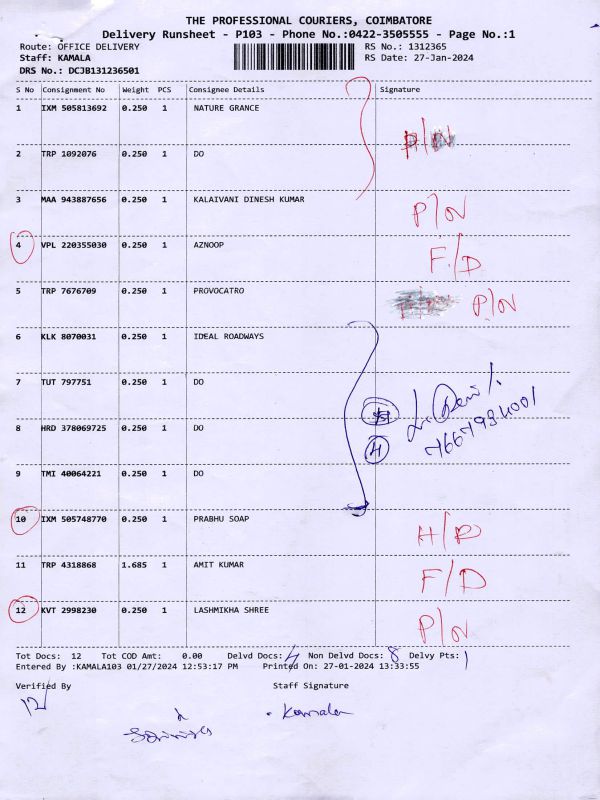 THE PROFESSIONAL COURIERS, COIMBATORE
Delivery Runsheet - P103 - Phone No.:0422-3505555 - Page No.:1
Route: OFFICE DELIVERY RS No.: 1312365
Staff: KAMALA RS Date: 27-Jan-2024
DRS No.: DCJB131236501
S No Consignment No Weight PCS Consignee Details Signature
1 IXM 505813692 0.250 1 NATURE GRANCE
P/N
2 TRP 1092076 0.250 1 DO
3 MAA 943887656 0.250 1 KALAIVANI DINESH KUMAR
P/N
4 VPL 220355030 0.250 1 AZNOOP
F/D
5 TRP 7676709 0.250 1 PROVOCATRO
P/N
6 KLK 8070031 0.250 1 IDEAL ROADWAYS
7 TUT 797751 0.250 1 DO
8 HRD 378069725 0.250 1 DO
4
9 TMI 40064221 0.250 1 DO
10 IXM 505748770 0.250 1 PRABHU SOAP
H/P
11 TRP 4318868 1.685 1 AMIT KUMAR
F/D
12 KVT 2998230 0.250 1 LASHMIKHA SHREE
P/N
Tot Docs: 12 Tot COD Amt: 0.00 Delvd Docs: 4 Non Delvd Docs: 8 Delvy Pts: 1
Entered By :KAMALA103 01/27/2024 12:53:17 PM Printed On: 27-01-2024 13:33:55
Verified By Staff Signature
Kamala